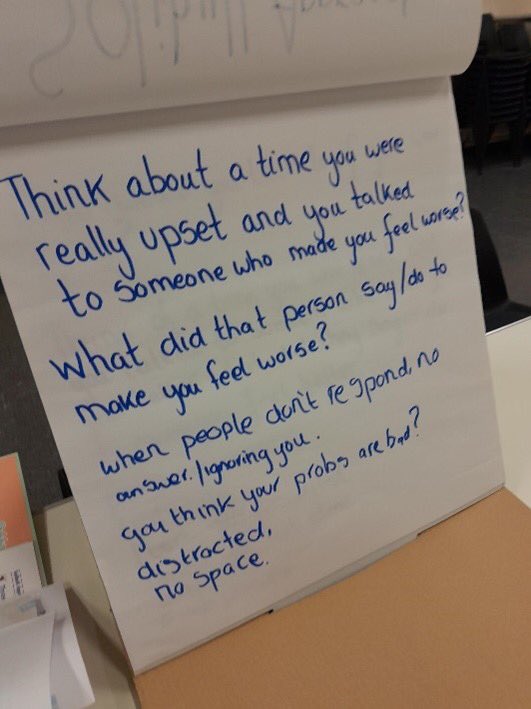 Think about a time you were
really upset and you talked
to someone who made you feel worse?
What did that person say/do to
make you feel worse?
when people don't respond, no
answer./ignoring you.
you think your probs are bad?
distracted,
no space.